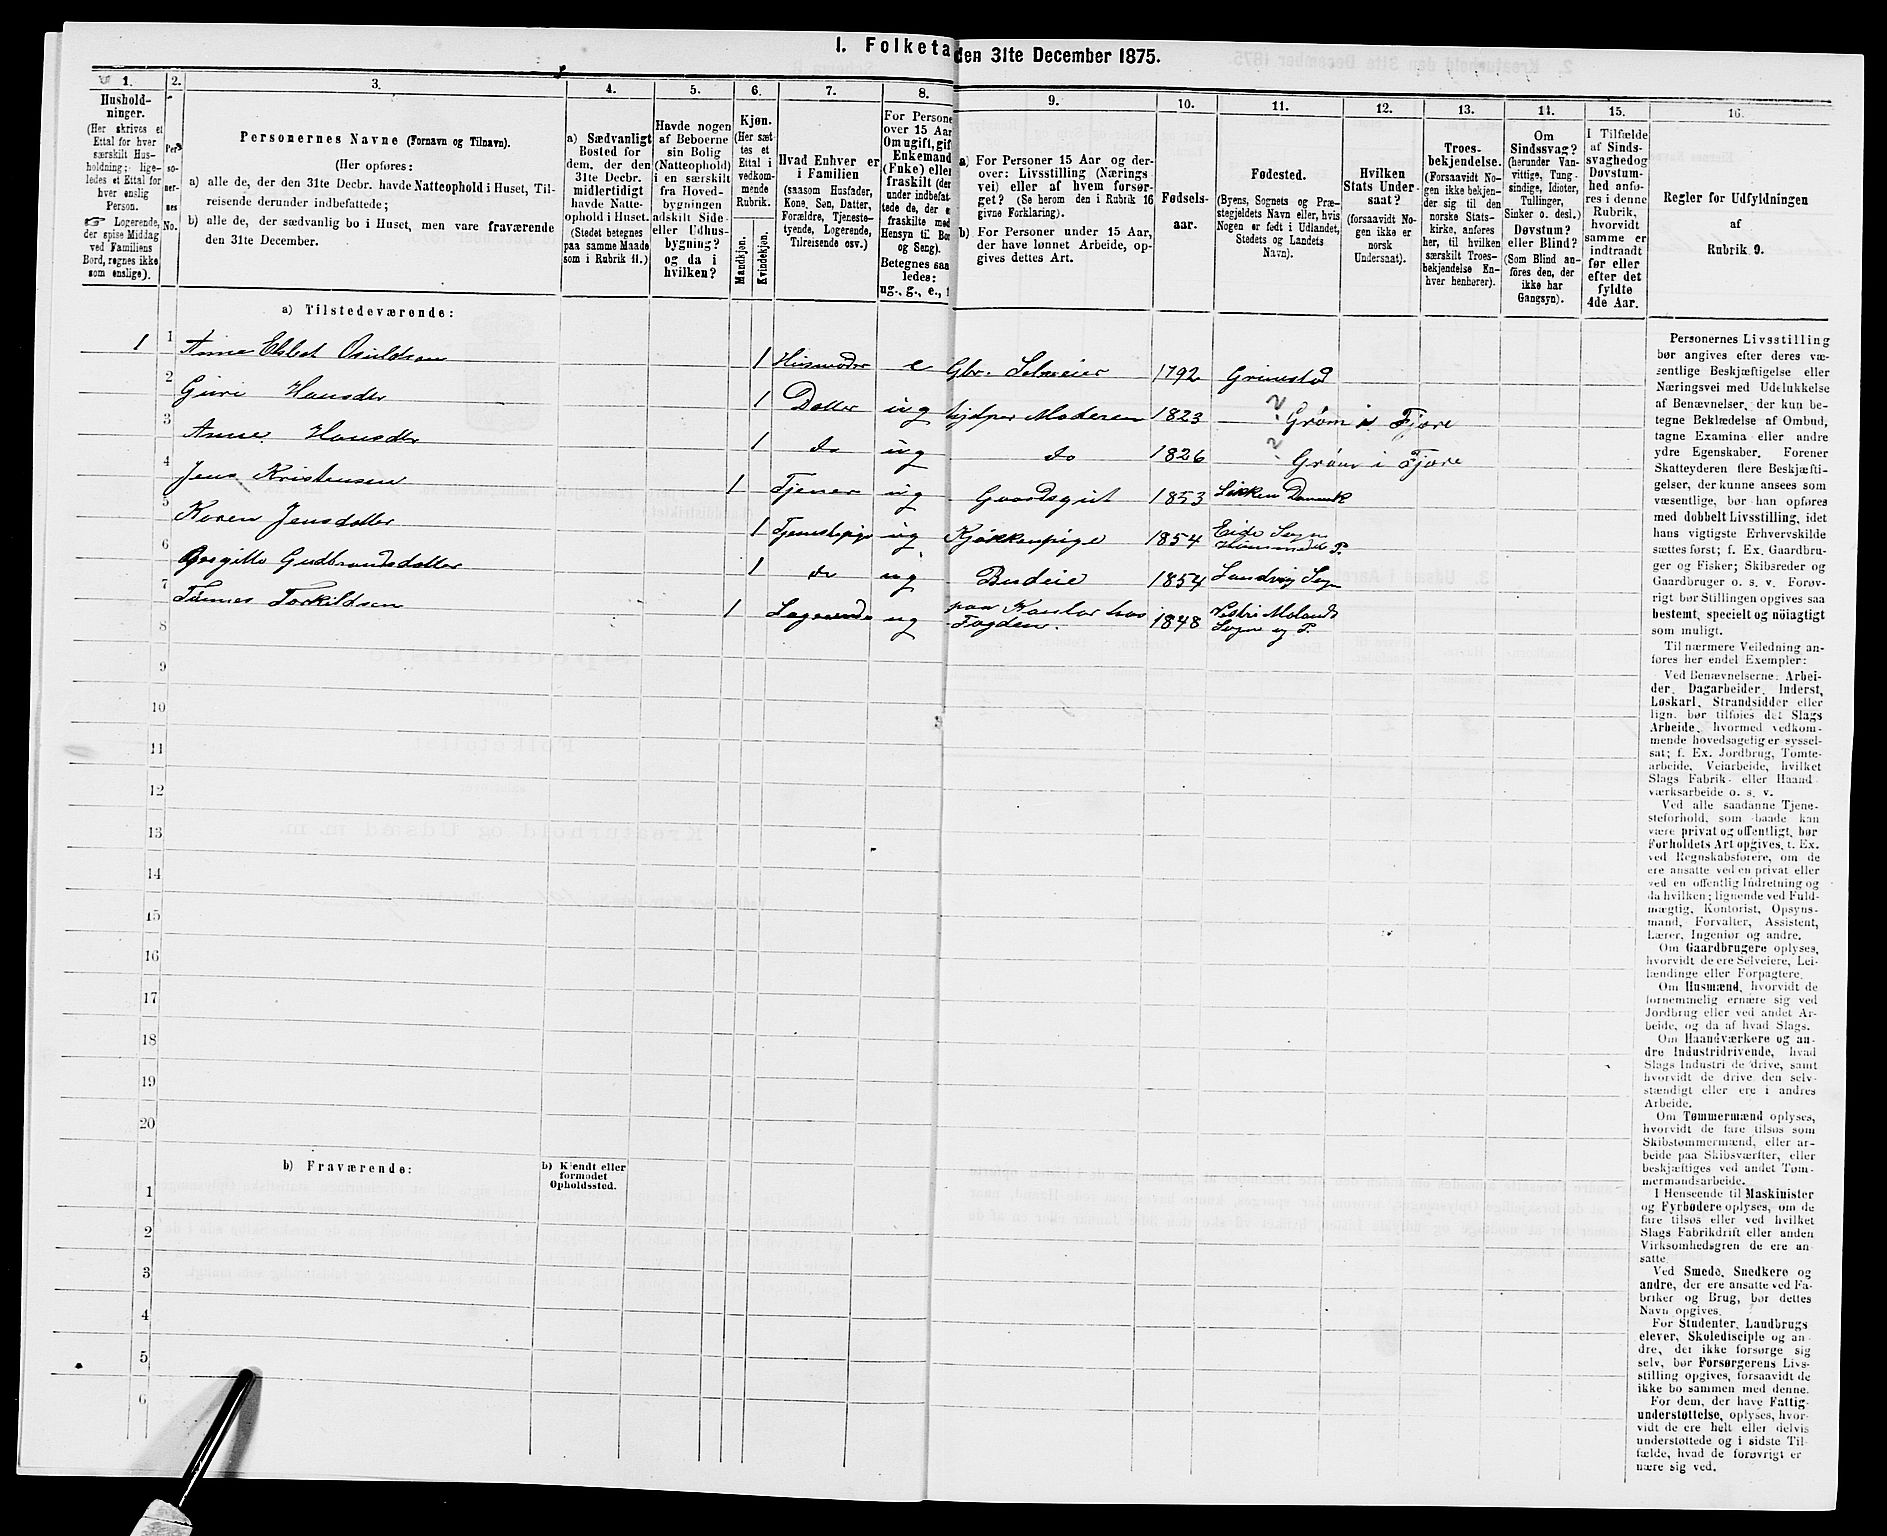 I. Folketa den 31te December 1875.
1.
Hushold-
ninger.
(Her skrives et
Ettal for hver
særskilt Hus-
holdning; lige-
ledes et Ettal for
hver enslig
Person.
☞ Logerende,
der spise Middag
ved Familiens
Bord, regnes ikke
som enslige).
2.
Per-
so-
ner-
nes
No.
3.
Personernes Navne (Fornavn og Tilnavn).
(Her opføres:
a) alle de, der den 31te Decbr. havde Natteophold i Huset, Til-
reisende derunder indbefattede;
b) alle de, der sædvanlig bo i Huset, men vare fraværende
den 31te December.
4.
a) Sædvanligt
Bosted for
dem, der den
31te Decbr.
midlertidigt
havde Natte-
ophold i Huset.
(Stedet betegnes
paa samme Maade
som i Rubrik 11.)
5.
Havde nogen
af Beboerne
sin Bolig
(Natteophold)
i en særskilt
fra Hoved-
bygningen
adskilt Side-
eller Udhus-
bygning?
og da i
hvilken?
6.
Kjøn.
(Her sæt-
tes et
Ettal i
vedkom-
mende
Rubrik.
Mandkjøn.
Kvindekjøn.
7.
Hvad Enhver er
i Familien
(saasom Husfader,
Kone, Søn, Datter,
Forældre, Tjeneste-
tyende, Logerende,
Tilreisende osv.)
8.
For Persone
over 15 Aar
Om ugift, gif
Enkemand
(Enke) eller
fraskilt (der
under indbefat-
tede de, der e
fraskilte med
Hensyn til Bo
og Seng).
Betegnes saa
ledes:
ug., g., e.,
9.
a) For Personer 15 Aar og der-
over: Livsstilling (Nærings
vei) eller af hvem forsør-
get? (Se herom den i Rubrik 16
givne Forklaring).
b) For Personer under 15 Aar,
der have lønnet Arbeide, op-
gives dettes Art.
10.
Fødsels-
aar.
11.
Fødested.
(Byens, Sognets og Præ-
stegjeldets Navn eller, hvis
Nogen er født i Udlandet,
Stedets og Landets
Navn).
12.
Hvilken
Stats Under-
saat?
(forsaavidt No-
gen ikke er
norsk
Undersaat).
13.
Troes-
bekjendelse.
(Forsaavidt No-
gen ikke bekjen-
der sig til den
norske Stats-
kirke, anføres
her, til hvilken
særskilt Troes-
bekjendelse En-
hver henhører).
14.
Om
Sindssvag?
(herunder Van-
vittige, Tung-
sindige, Idioter,
Tullinger,
Sinker o. desl.)
Døvstum?
eller Blind?
(Som Blind an-
føres den, der
ikke har
Gangsyn).
15.
I Tilfælde
af Sinds-
svaghed og
Døvstum-
hed anfø-
res i denne
Rubrik,
hvorvidt
samme er
indtraadt
før eller
efter det
fyldte
4de Aar.
16.
Regler for Udfyldningen
af
Rubrik 9.
a) Tilstedeværende:
1 1 Anne Elsbet Osuldsen 1 Husmoder e Gbr. Selveier 1792 Grimstad
2 Guri Hansdtr 1 Datter ug hjelper Moderen 1823 ? Grøm i Fjære
3 Anne Hansdtr 1 do ug do 1826 ? Grøm i Fjære
4 Jens Kristensen 1 Tjener ug Gaardsgut 1853 Løkken Danmk
5 Karen Jensdatter 1 Tjenestepige ug Kjøkkenpige 1854 Eide Sogn
P.
6 Gudbrandsdatter 1 do ug Budeie 1854 Landvig Sogn
7 Tønnes Torkildsen 1 Logerende ug paa Kontor hos
Fogden. 1848 Vestri Molands
Sogn og P.
8
9
10
11
12
13
14
15
16
17
18
19
20
b) Fraværende:
b) Kjendt eller
formodet
Opholdssted.
1
2
3
4
5
6
Personernes Livsstilling
bør angives efter deres væ-
sentlige Beskjæftigelse eller
Næringsvei med Udelukkelse
af Benævnelser, der kun be-
tegne Beklædelse af Ombud,
tagne Examina eller andre
ydre Egenskaber. Forener
Skatteyderen flere Beskjæfti-
gelser, der kunne ansees som
væsentlige, bør han opføres
med dobbelt Livsstilling, idet
hans vigtigste Erhvervskilde
sættes først; f. Ex. Gaardbru-
ger og Fisker; Skibsreder og
Gaardbruger o. s. v. Forøv-
rigt bør Stillingen opgives saa
bestemt, specielt og nöiagtigt
som muligt.
Til nærmere Veiledning an-
føres her endel Exempler:
Ved Benævnelserne: Arbei-
der, Dagarbeider, Inderst,
Løskarl, Strandsidder eller
lign. bør tilføies det Slags
Arbeide, hvormed vedkom-
mende hovedsagelig er syssel-
sat; f. Ex. Jordbrug, Tomte-
arbeide, Veiarbeide, hvilket
Slags Fabrik- eller Haand
værksarbeide o. s. v.
Ved alle saadanne Tjene-
steforhold, som baade kan
være privat og offentligt, bør
Forholdets Art opgives, t. Ex.
ved Regnskabsførere, om de
ere ansatte ved en privat eller
ved en offentlig Indretning og
da hvilken; lignende ved Fuld-
mægtig, Kontorist, Opsyns-
mand, Forvalter, Assistent,
Lærer, Ingeniør og andre.
Om Gaardbrugere oplyses,
hvorvidt de ere Selveiere, Lei-
lændinge eller Forpagtere.
Om Husmænd, hvorvidt de
fornemmelig ernære sig ved
Jordbrug eller ved andet Ar-
beide, og da af hvad Slags.
Om Haandværkere og an-
dre Industridrivende, hvad
Slags Industri de drive, samt
hvorvidt de drive den selv-
stændigt eller ere i andres
Arbeide.
Om Tømmermænd oplyses,
hvorvidt de fare tilsøs som
Skibstømmermænd, eller ar-
beide paa Skibsværfter, eller
beskjæftiges ved andet Tøm-
mermandsarbeide.
I Henseende til Maskinister
og Fyrbødere oplyses, om de
fare tilsøs eller ved hvilket
Slags Fabrikdrift eller anden
Virksomhedsgren de ere an-
satte.
Ved Smede, Snedkere og
andre, der ere ansatte ved Fa-
briker og Brug, bør dettes
Navn opgives.
For Studenter, Landbrugs
elever, Skoledisciple og an-
dre, der ikke forsørge sig
selv, bør Forsørgerens Livs-
stilling opgives, forsaavidt de
ikke bo sammen med denne.
For dem, der have Fattig-
understøttelse, oplyses, hvor-
vidt de ere helt eller delvis
understøttede og i sidste Til-
fælde, hvad de forøvrigt er
nære sig ved.